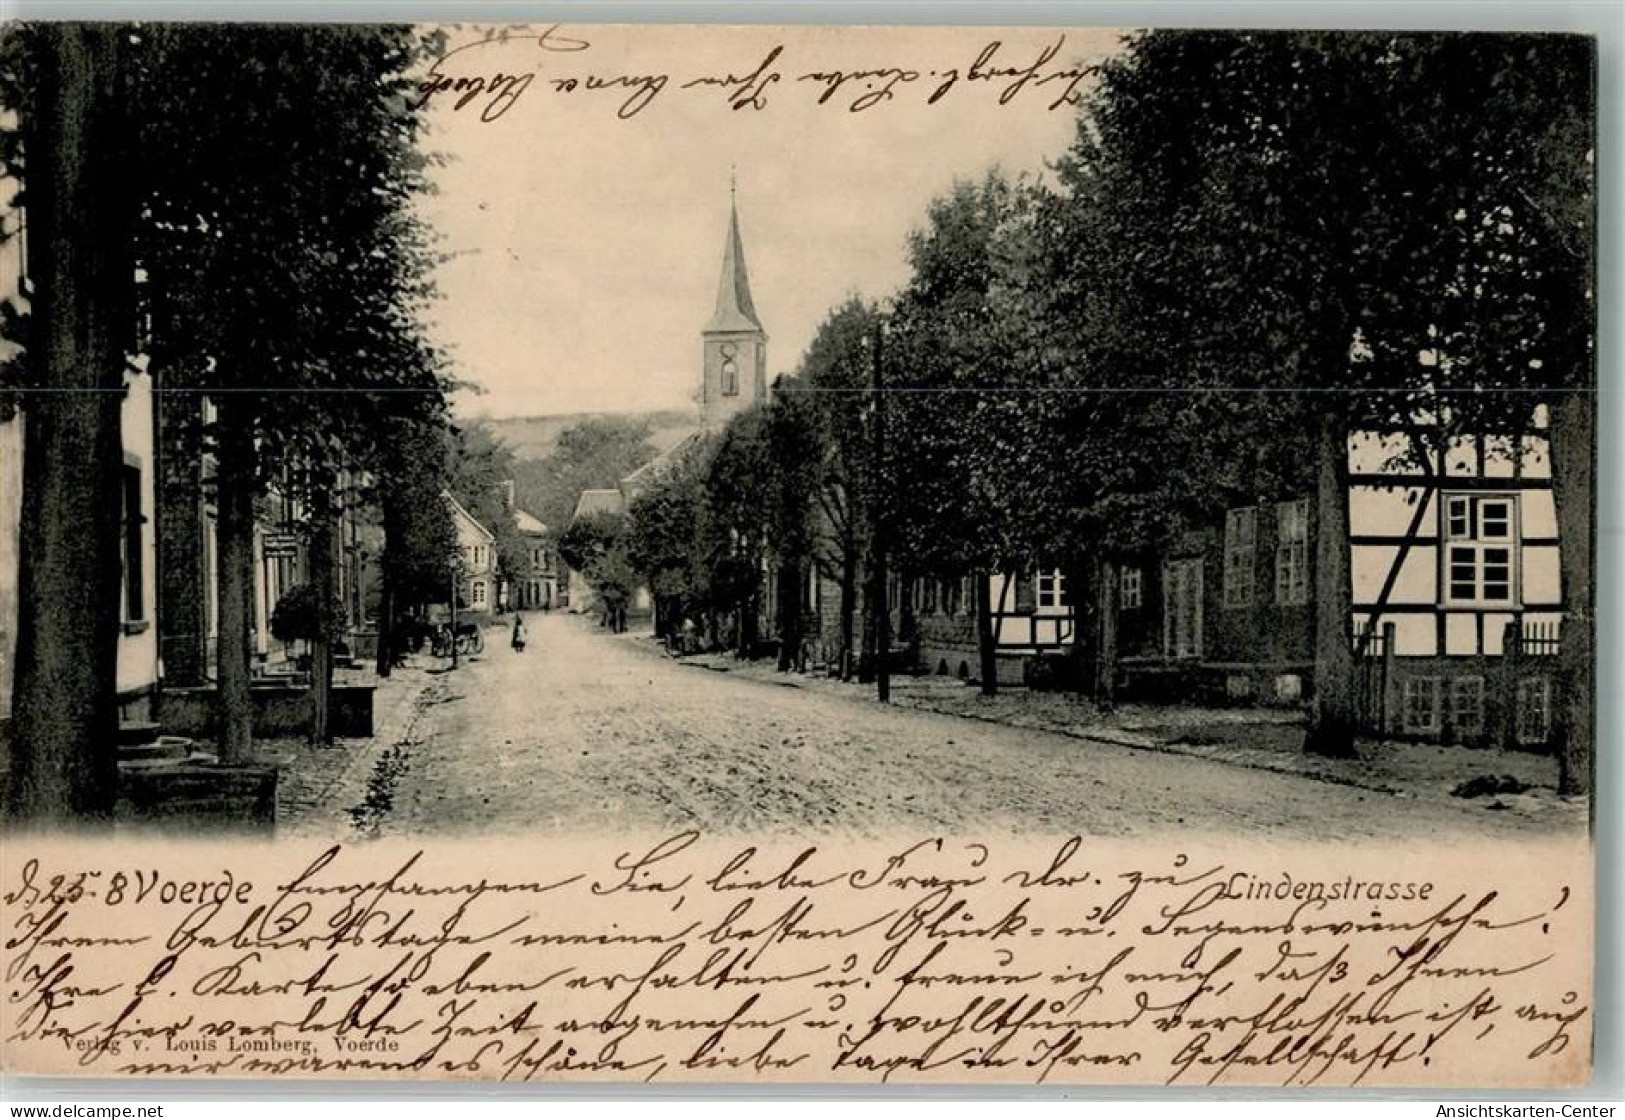 In herzl. Liebe Ihre Anna
d 25. 8 Voerde Empfangen Sie, liebe Frau Dr. zu Lindenstrasse
Ihrem Geburtstage meine besten Glück- u. Segenswünsche!
Ihre l. Karte so eben erhalten u. freue ich mich, daß Ihnen
die hier verlebte Zeit angenehm u. wohlthuend verflossen ist, auch
Verlag v. Louis Lomberg, Voerde
mir waren es schöne, liebe Tage in Ihrer Gesellschaft!
delcampe.net
Ansichtskarten-Center